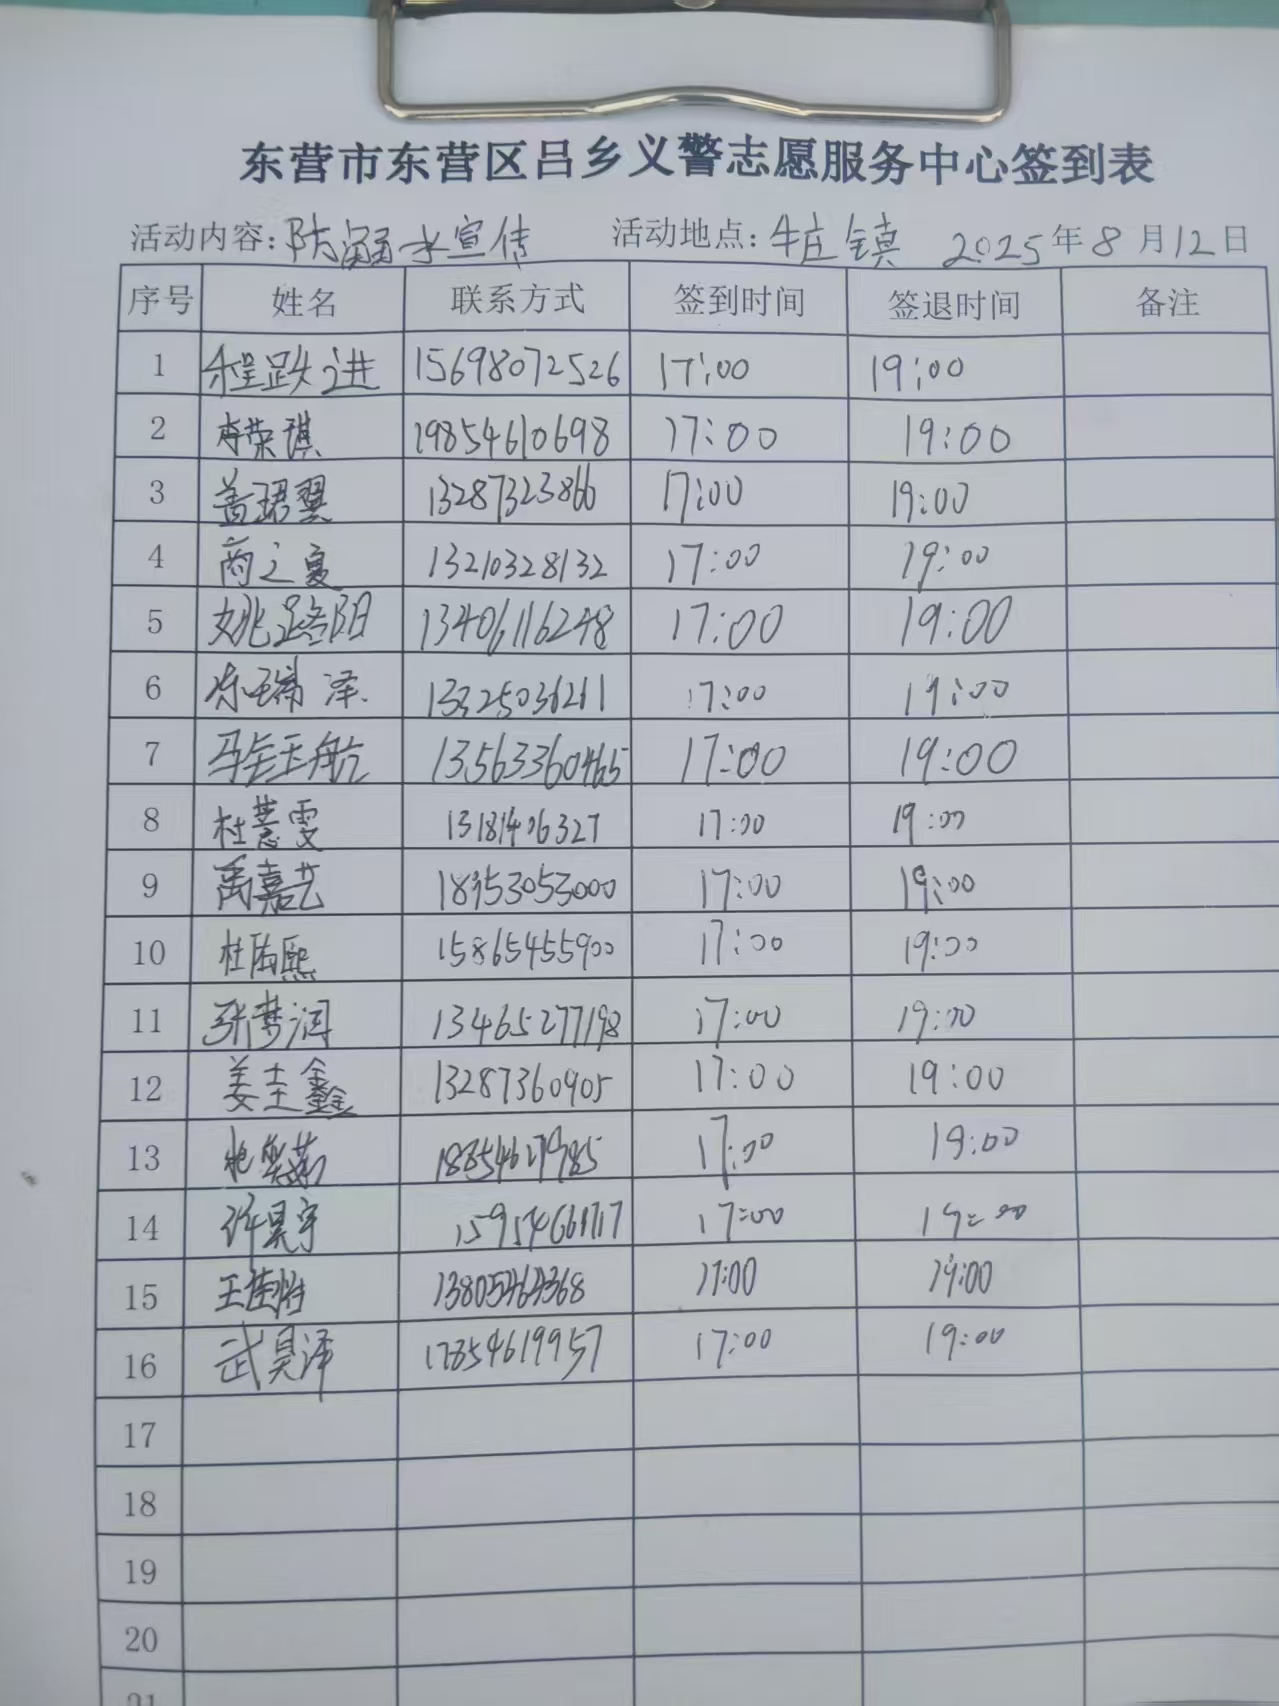 东营市东营区吕乡义警志愿服务中心签到表
活动内容:防溺水宣传 活动地点:牛庄镇 2025年8月12日
序号 姓名 联系方式 签到时间 签退时间 备注
1 程跃进 15698072526 17:00 19:00
2 李荣琪 19854610698 17:00 19:00
3 盖珺翼 13287323866 17:00 19:00
4 商之夏 13210328132 17:00 19:00
5 姚路阳 13406116248 17:00 19:00
6 瑞泽 13325036261 17:00 19:00
7 马钰航 13563360465 17:00 19:00
8 杜慧雯 13181406327 17:00 19:00
9 禹嘉艺 18353053000 17:00 19:00
10 杜 熙 15865455900 17:00 19:00
11 张梦润 13465277198 17:00 19:00
12 姜圭鑫 13287360905 17:00 19:00
13 17:00 19:00
14 许昊宇 17:00 19:00
15 王佳胜 13805464368 17:00 19:00
16 武昊泽 17854619957 17:00 19:00
17
18
19
20
21